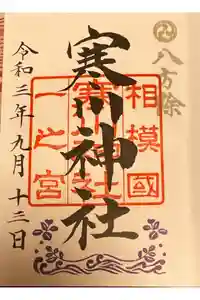 八方除
寒川神社
相模國
寒川神社
一之宮
令和三年九月十三日